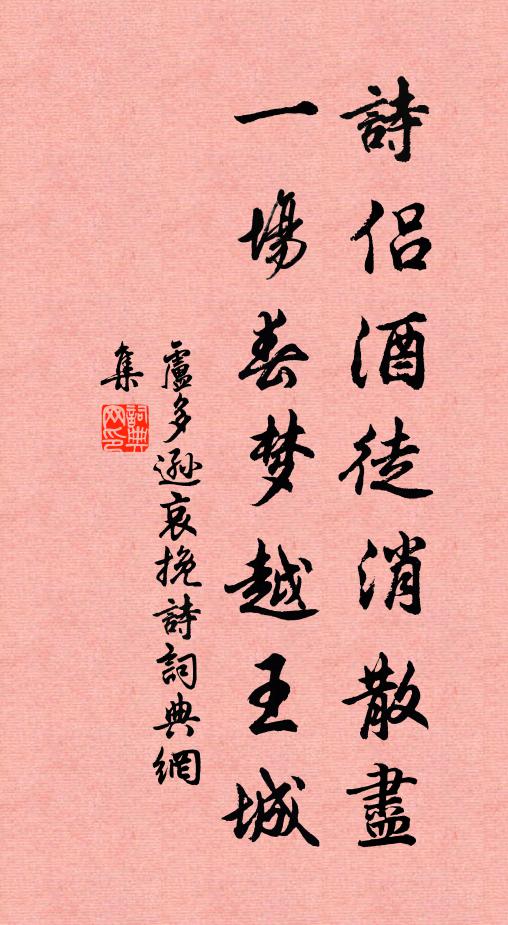 詩侣酒徒消散盡
一場春梦越王城
盧多遜哀挽詩詞典網
集
詞典网印